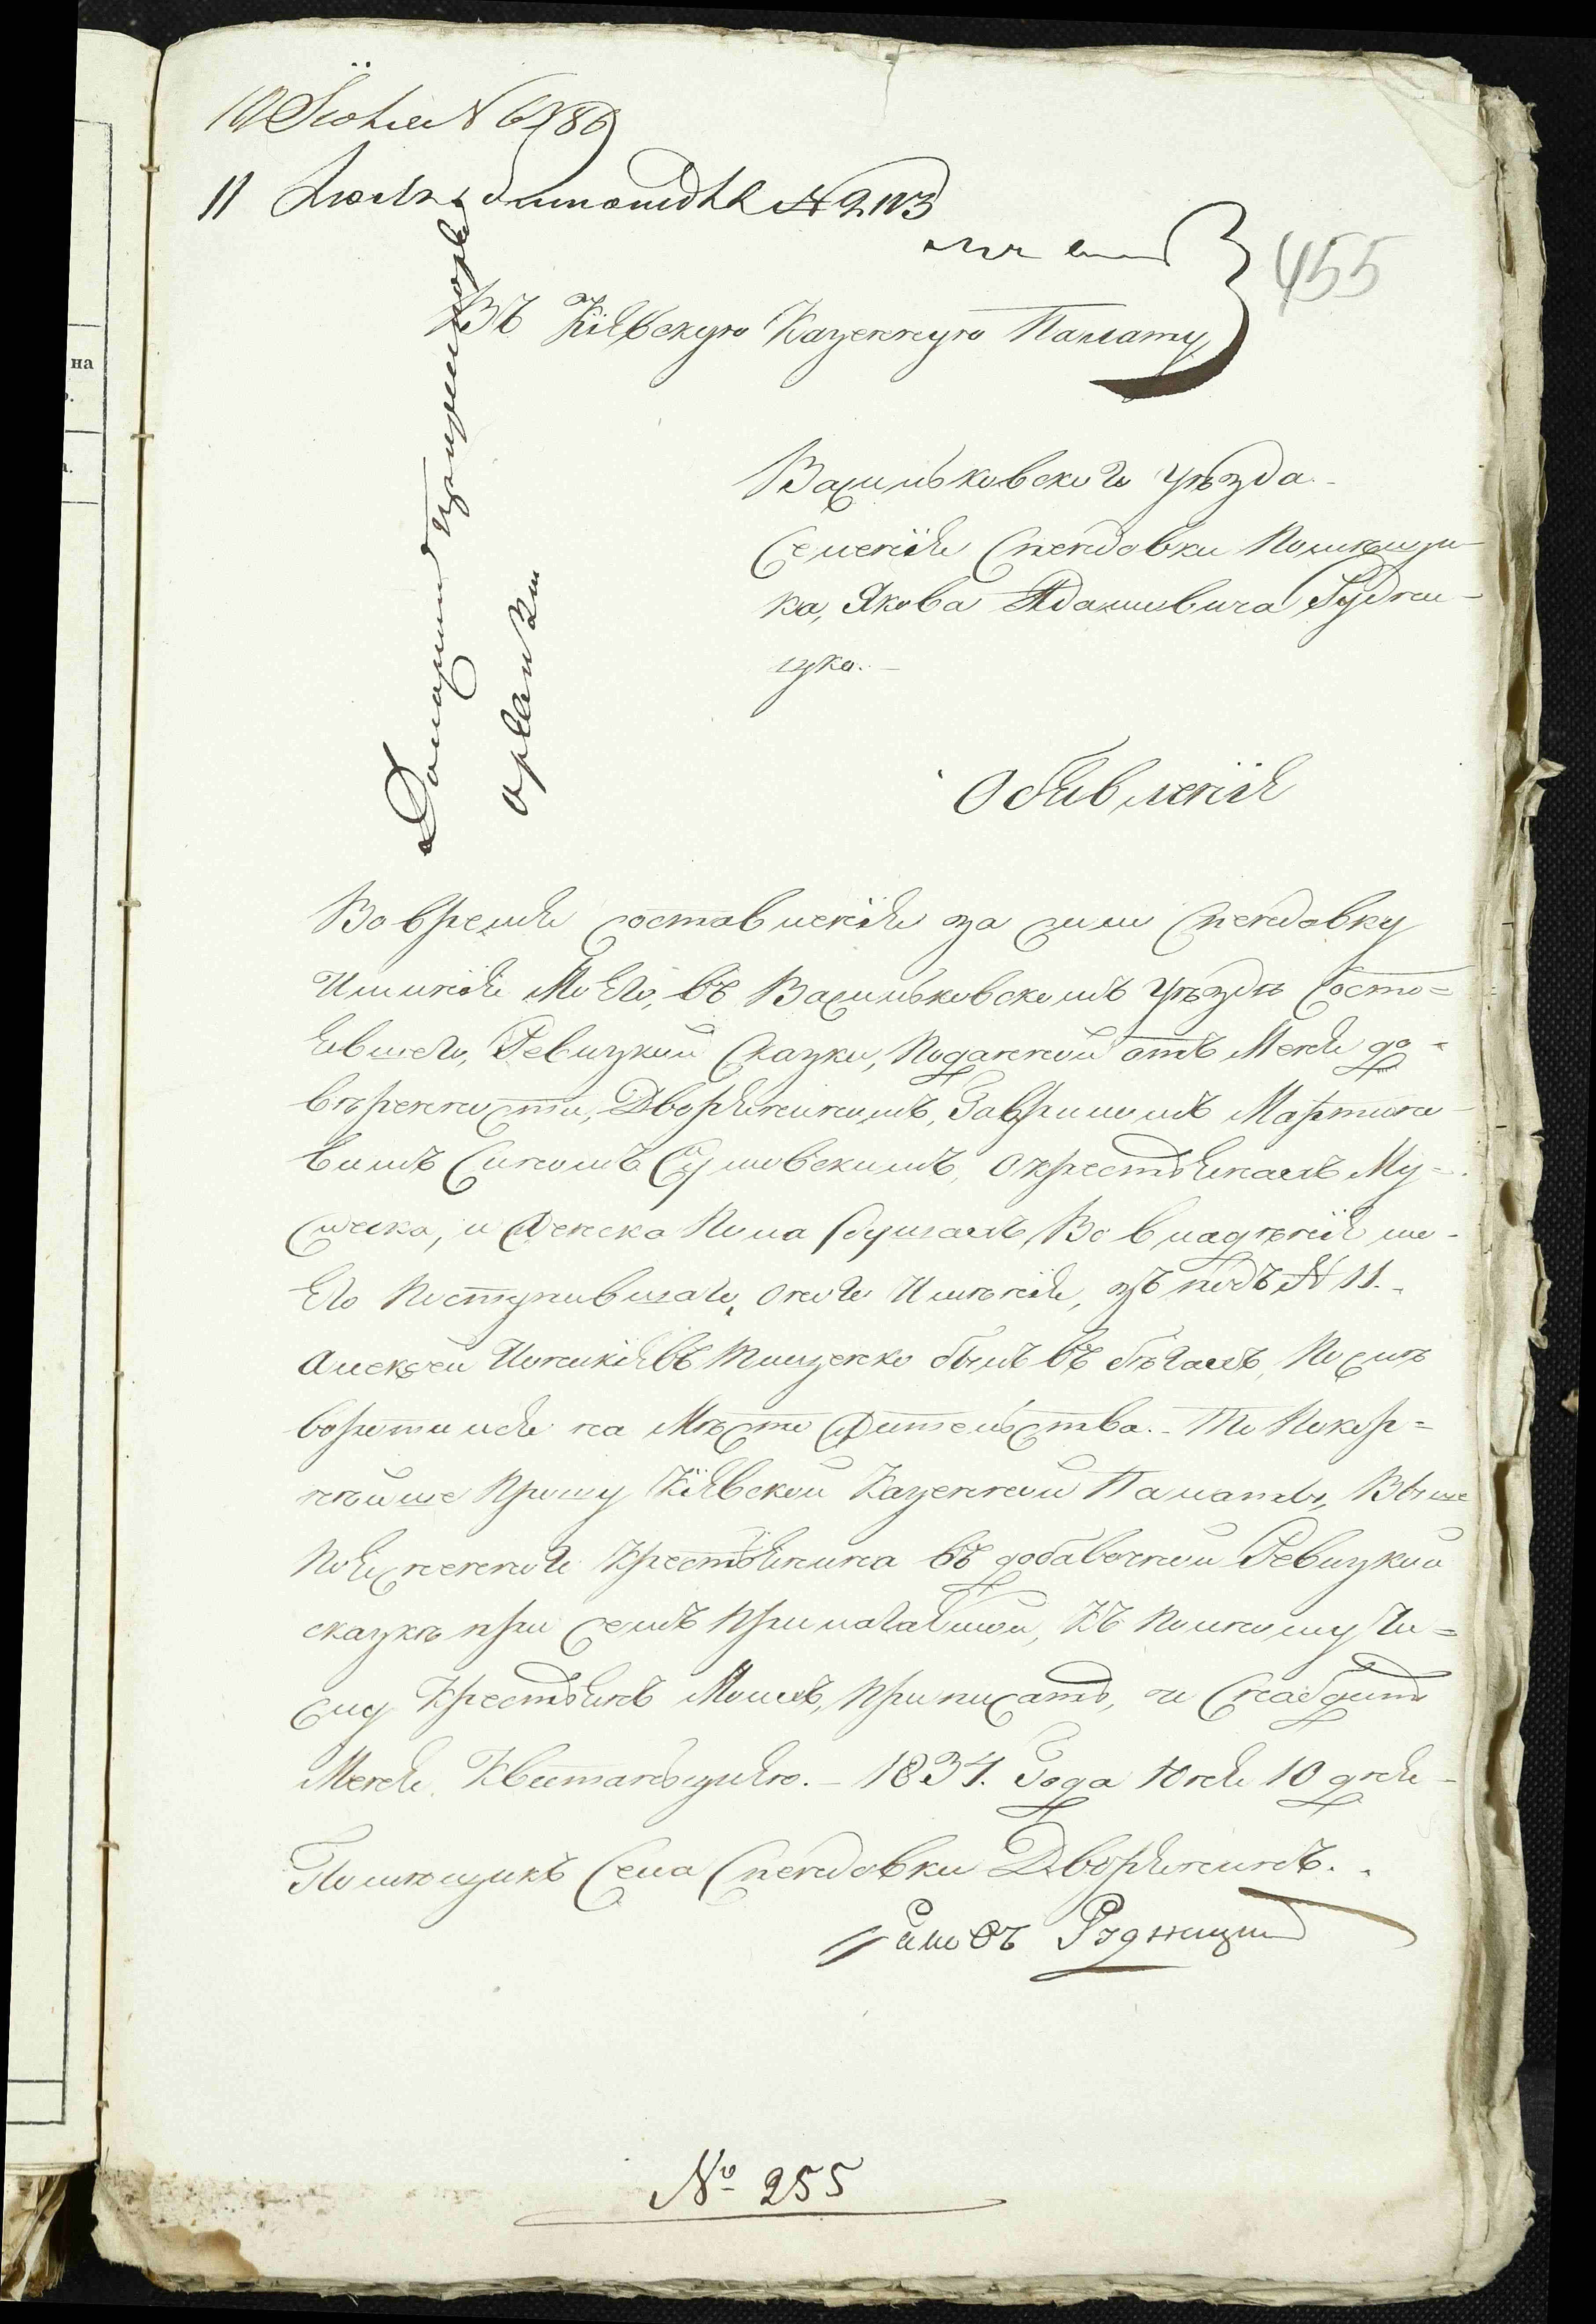 на
10 Іюля N 6786
11 Іюля N 2103
455
Въ Кіевскую Казенную Палату
Васильковского уѣзда
Селенія Спендовки Помѣщи-
ка, Якова Адамовича Рудни-
цка.
Обявленія
Во время составленія за сили Спендовку
Имѣнія Моего, въ Васильковскомъ уѣздѣ Состо=
явшего, Ревизкой Сказки, Поданной отъ Меня до-
вѣренности, Дворяниномъ, Гавриломъ Мартино-
вимъ Сином Сулковскимъ, о крестьянахъ Му-
жеска, и Женска Пола душахъ, Во владѣніе мо-
его Поступившаго, оного Имѣнія, зъ подъ N 11.
Алексѣй Пищенко былъ въ бѣгахъ, Посля
воротился на Мѣсто Жительства. То Покор=
нѣйше Прошу Кіевской Казенной Палаты, Выше
Поясненного Крестьянина въ добавочной Ревизкой
сказкѣ при Семъ прилагаемой, Къ Полному Чи=
слу Крестьянъ Моихъ, приписать, и Снабдить
Меня Квитанъциею. – 1834. Года Юля 10 дня
Помѣщикъ Села Спендовки Дворянинъ.
Яковъ Рудницкий
№ 255